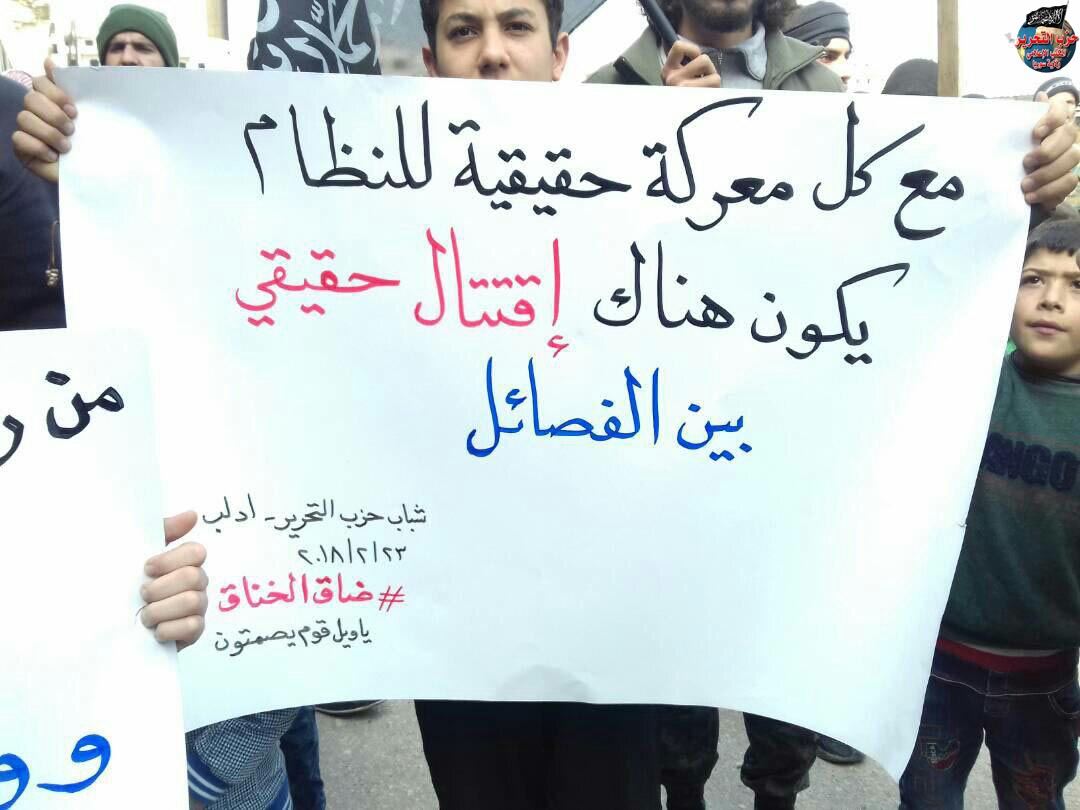 حزب التحرير
المكتب الإعلامي
ولاية سوريا
مع كل معركة حقيقية للنظام
يكون هناك إقتتال حقيقي
بين الفصائل
شباب حزب التحرير - ادلب
٢٠١٨/٢/٢٣
#ضاق_الخناق
ياويل قوم يصمتون
من